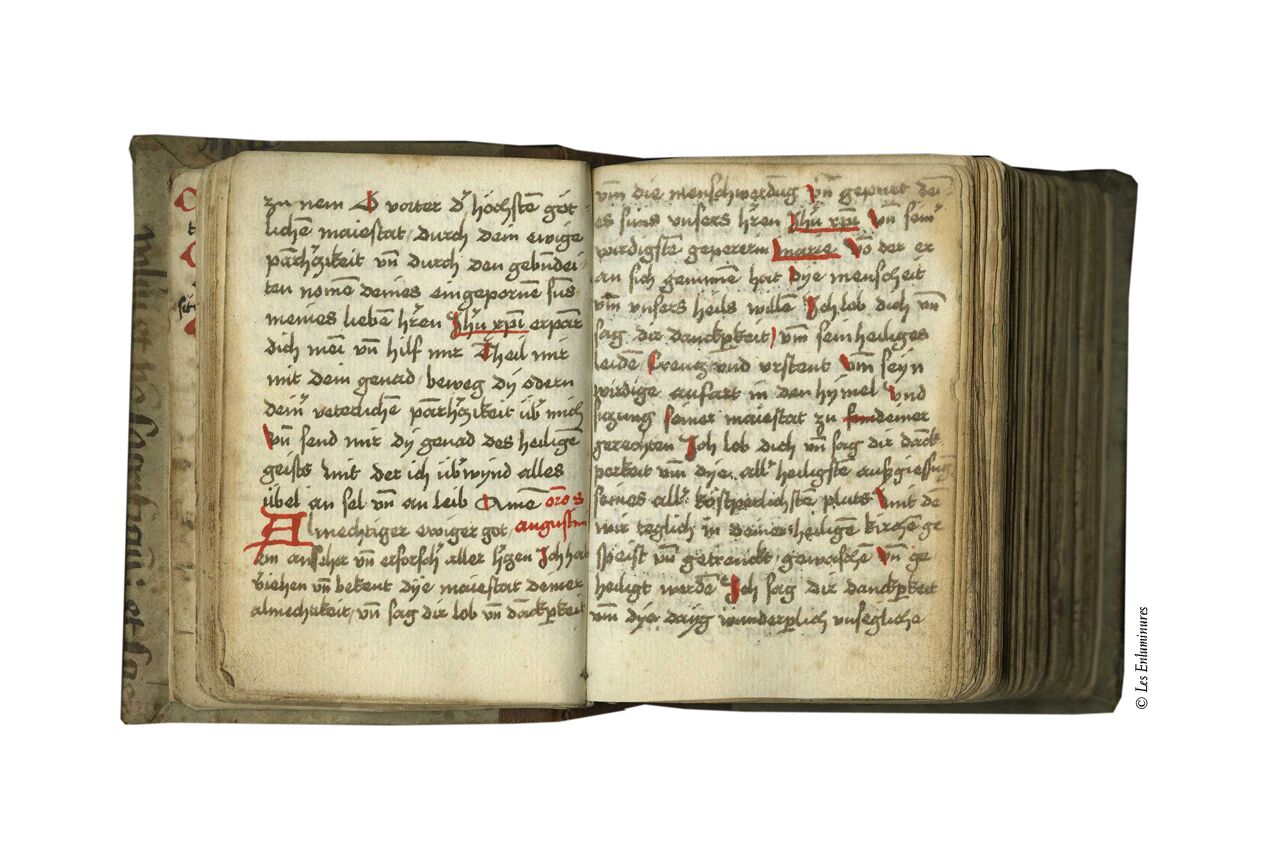 zu nem O vorter d' höchstē göt
lichē maiestat durch dein ewige
parhʒikeit vn̄ durch den gebn̄dei
ten nomē deines eingepornē suns
meines liebē hren Jhū xp̄i erpar
dich mei vn̄ hilf mir Theil mir
mit dein genad beweg dy odern
dein' veterlichē parhʒikeit üb' mich
vn̄ send mir dy genad des heiligē
geists mit der ich üb'wynd alles
übel an sel vn̄ an leib Amē oro s
Almechtiger ewiger got augustini
ein vn̄ erforsch' aller h'ʒen Ich hab
vn̄ bekent dye maiestat deiner
almechikeit vn̄ sag dir lob vn̄ dāckp'keit
vm̄ die menschwerdūg vn̄ gepurt dei
es suns vnsers hren Jhū xp̄i vn̄ sein'
wirdigstē gepererin marie Vō der er
an sich genumē hat dye menscheit
vm̄ vnsers heils willē Ich lob dich vn̄
sag dir danckp'keit vm̄ sein heiliges
leidē Creutz vnd vrstent Vm̄ seyn
wirdige aufart in den hymel Vnd
siʒung seiner maiestat zu deiner
gerechten Ich lob dich vn̄ sag dir dāck
perkeit vm̄ dye all' heiligste aufzgiessūg
seines all' köstperlichstē pluts mit de
wir teglich in deiner heiligen kirchē ge
speist vn̄ getrenckt gewaschē vn̄ ge
heiligt werdē Ich sag dir danckp'keit
vm̄ dye wunderp'lich vnsegliche
© Les Enluminures